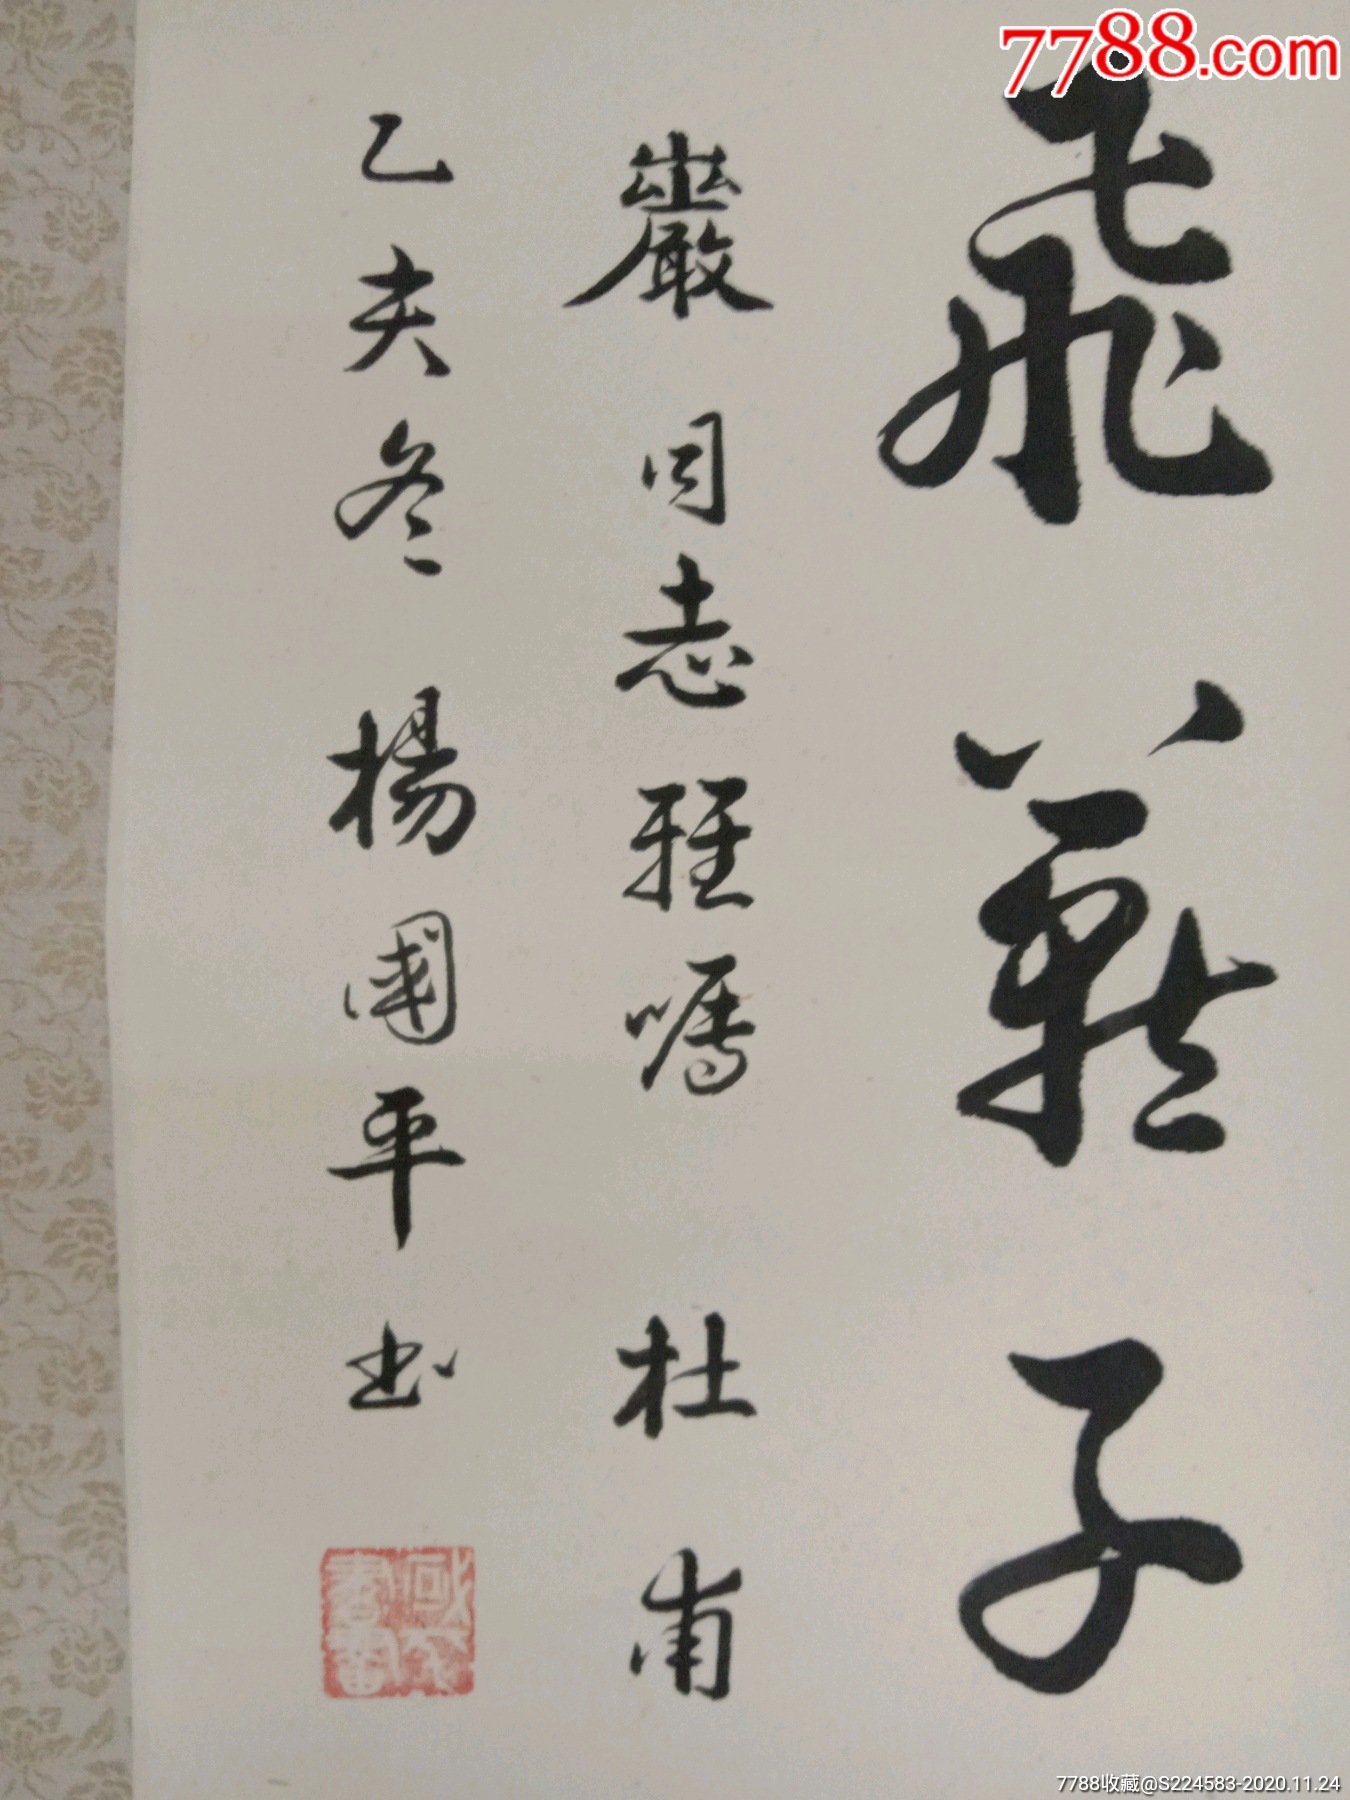 7788.com
飛 子
巖同志雅嘱 杜甫
乙亥冬 楊國平书
7788收藏@S224583-2020.11.24